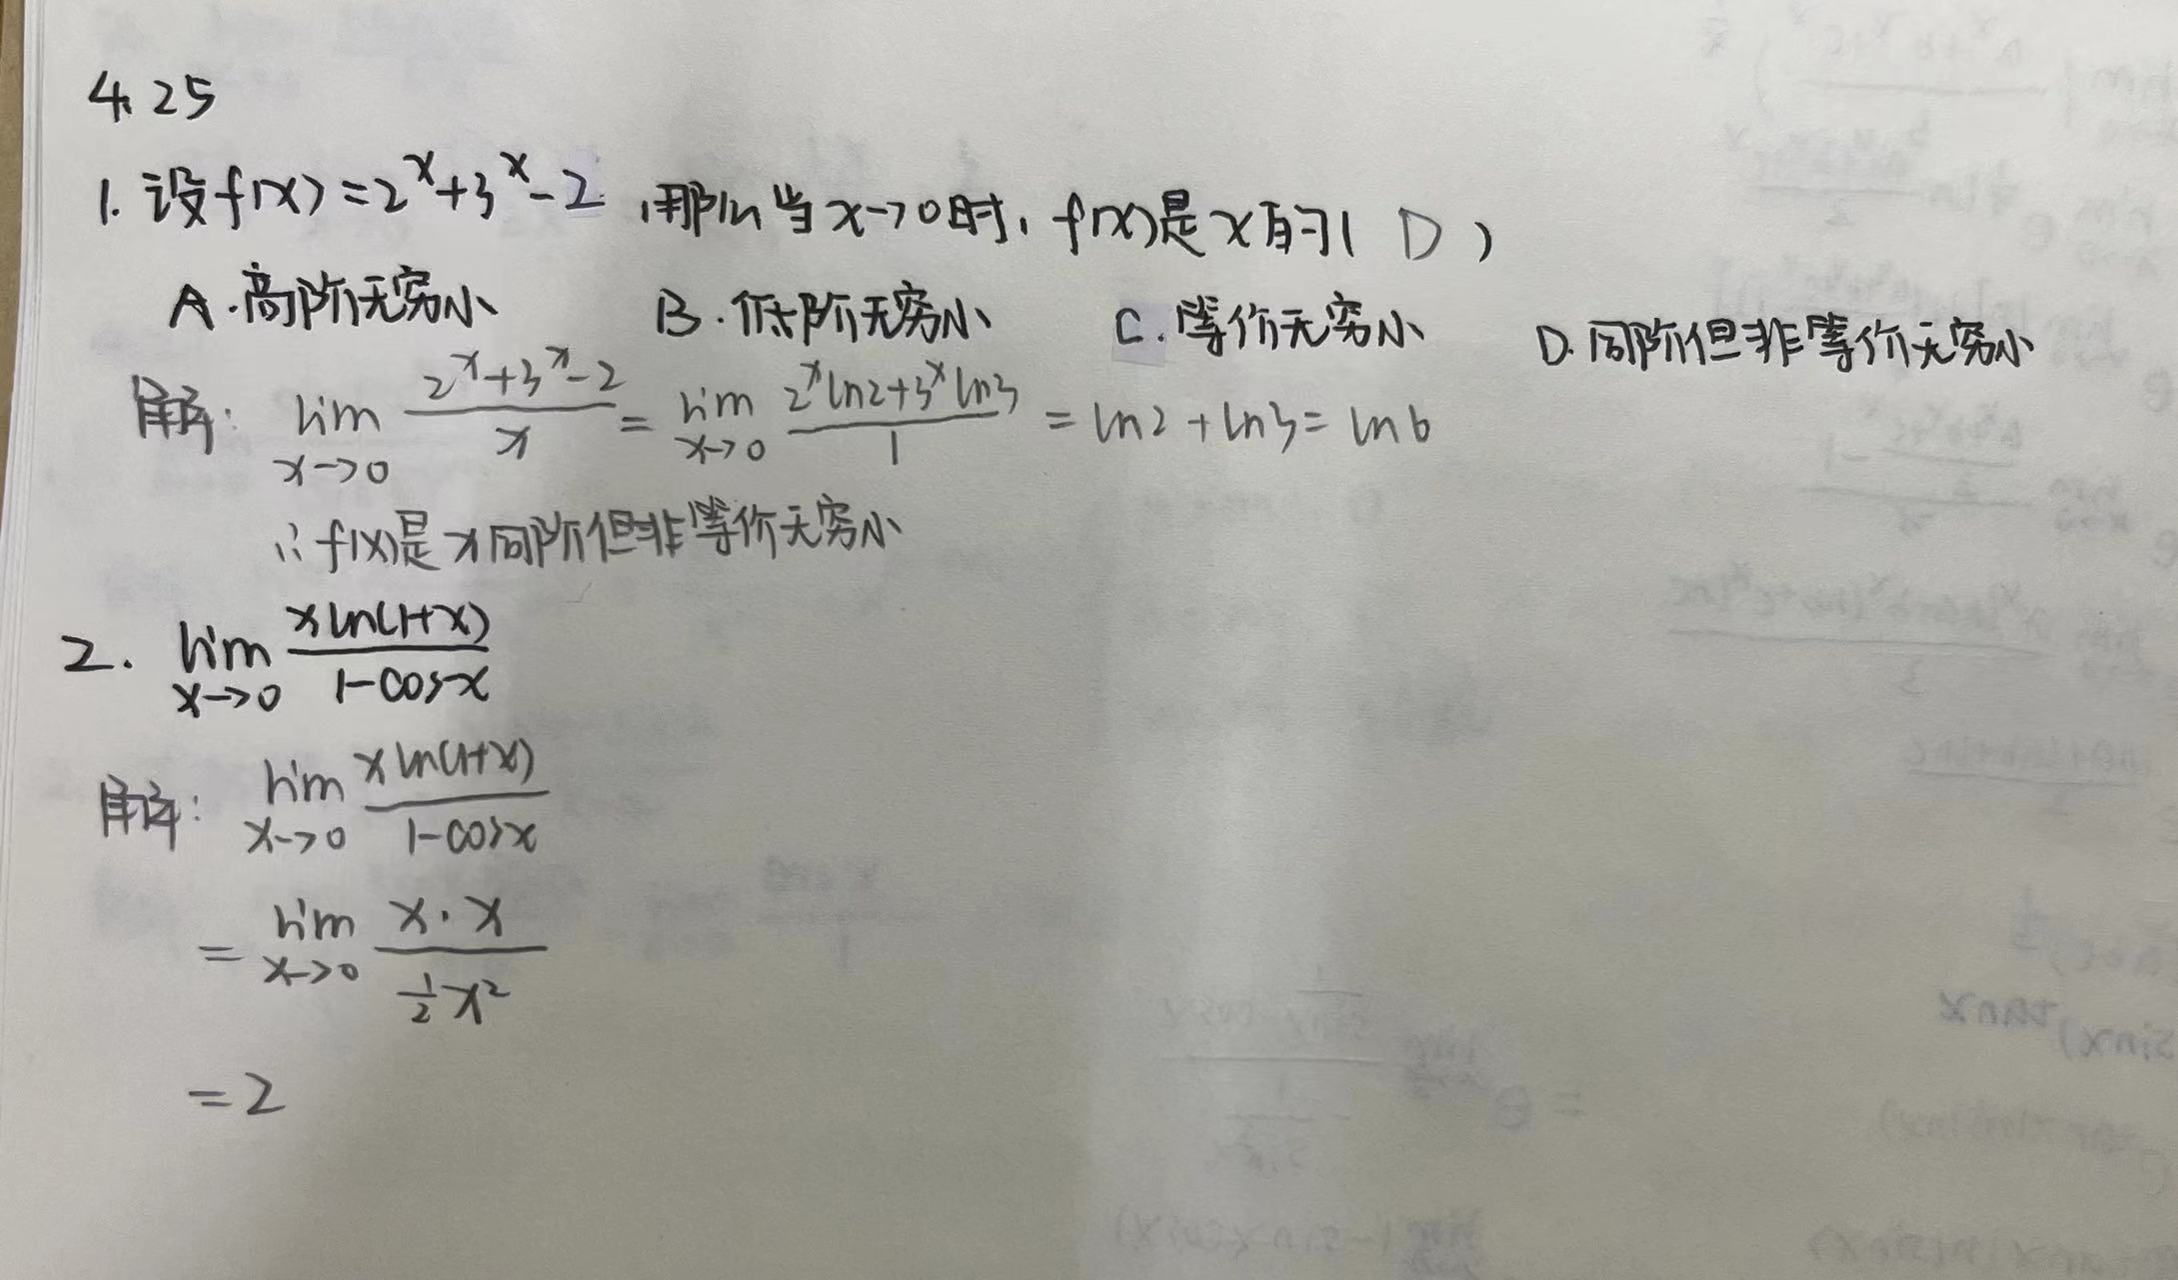 4.25
1. 设f(x)=2^x+3^x-2,那么当x→0时,f(x)是x的( D )
A.高阶无穷小 B.低阶无穷小 C.等价无穷小 D.同阶但非等价无穷小
解: lim_{x→0} (2^x+3^x-2)/x = lim_{x→0} (2^x ln2+3^x ln3)/1 = ln2+ln3=ln6
∴f(x)是x同阶但非等价无穷小
2. lim_{x→0} xln(1+x)/(1-cosx)
解: lim_{x→0} xln(1+x)/(1-cosx)
= lim_{x→0} x·x/(1/2 x²)
=2